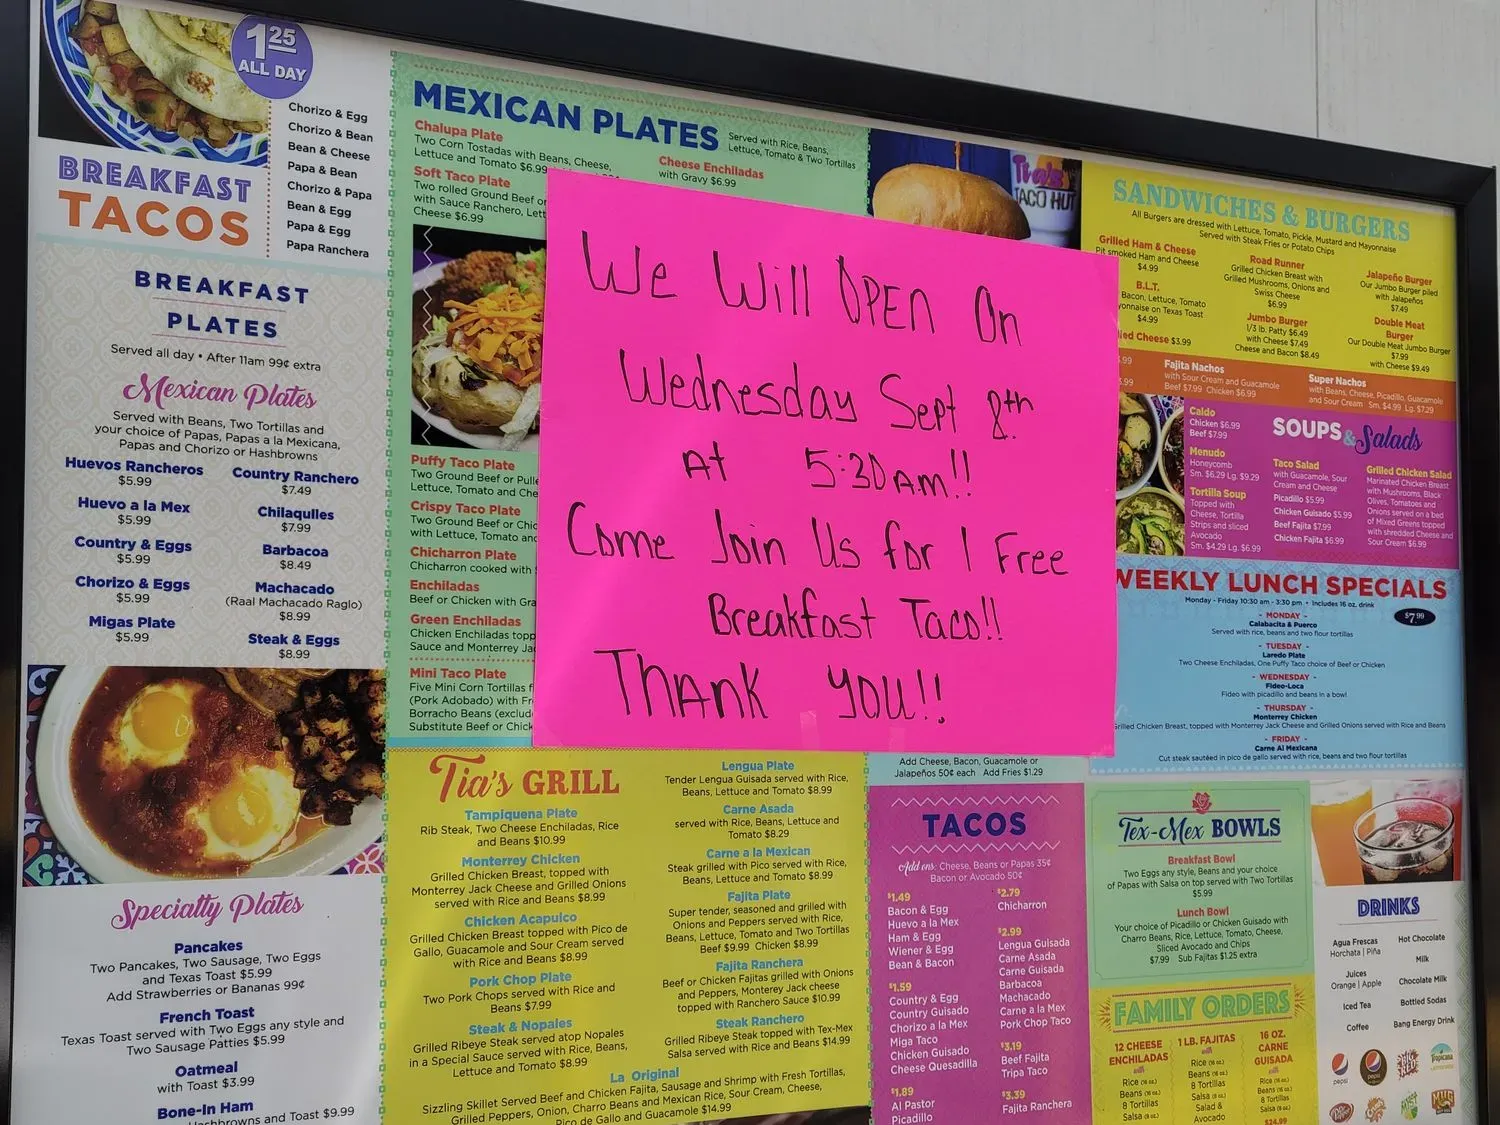 1.25
ALL DAY
Chorizo & Egg
Chorizo & Bean
Bean & Cheese
Papa & Bean
Chorizo & Papa
Bean & Egg
Papa & Egg
Papa Ranchera
BREAKFAST
TACOS
BREAKFAST
PLATES
Served all day • After 11am 99¢ extra
Mexican Plates
Served with Beans, Two Tortillas and
your choice of Papas, Papas a la Mexicana,
Papas and Chorizo or Hashbrowns
Huevos Rancheros
$5.99
Huevo a la Mex
$5.99
Country & Eggs
$5.99
Chorizo & Eggs
$5.99
Migas Plate
$5.99
Country Ranchero
$7.49
Chilaqulles
$7.99
Barbacoa
$8.49
Machacado
(Raal Machacado Raglo)
$8.99
Steak & Eggs
$8.99
Specialty Plates
Pancakes
Two Pancakes, Two Sausage, Two Eggs
and Texas Toast $5.99
Add Strawberries or Bananas 99¢
French Toast
Texas Toast served with Two Eggs any style and
Two Sausage Patties $5.99
Oatmeal
with Toast $3.99
Bone-In Ham
Hashbrowns and Toast $9.99
MEXICAN PLATES
Served with Rice, Beans,
Lettuce, Tomato & Two Tortillas
Chalupa Plate
Two Corn Tostadas with Beans, Cheese,
Lettuce and Tomato $6.99
Cheese Enchiladas
with Gravy $6.99
Soft Taco Plate
Two rolled Ground Beef or
with Sauce Ranchero, Lett
Cheese $6.99
Puffy Taco Plate
Two Ground Beef or Pulle
Lettuce, Tomato and Che
Crispy Taco Plate
Two Ground Beef or Chic
Lettuce, Tomato and
Chicharron Plate
Chicharron cooked with
Enchiladas
Beef or Chicken with Gra
Green Enchiladas
Chicken Enchiladas topp
Sauce and Monterrey Ja
Mini Taco Plate
Five Mini Corn Tortillas f
(Pork Adobado) with Fr
Borracho Beans (exclud
Substitute Beef or Chick
We Will OPEN On
Wednesday Sept 8th
At 5:30AM!!
Come Join Us for 1 Free
Breakfast Taco!!
THANK YOU!!
Tia's GRILL
Tampiquena Plate
Rib Steak, Two Cheese Enchiladas, Rice
and Beans $10.99
Monterrey Chicken
Grilled Chicken Breast, topped with
Monterrey Jack Cheese and Grilled Onions
served with Rice and Beans $8.99
Chicken Acapulco
Grilled Chicken Breast topped with Pico de
Gallo, Guacamole and Sour Cream served
with Rice and Beans $8.99
Pork Chop Plate
Two Pork Chops served with Rice and
Beans $7.99
Steak & Nopales
Grilled Ribeye Steak served atop Nopales
in a Special Sauce served with Rice, Beans,
Lettuce and Tomato $8.99
Lengua Plate
Tender Lengua Guisada served with Rice,
Beans, Lettuce and Tomato $8.99
Carne Asada
served with Rice, Beans, Lettuce and
Tomato $8.29
Carne a la Mexican
Steak grilled with Pico served with Rice,
Beans, Lettuce and Tomato $8.99
Fajita Plate
Super tender, seasoned and grilled with
Onions and Peppers served with Rice,
Beans, Lettuce, Tomato and Two Tortillas
Beef $9.99 Chicken $8.99
Fajita Ranchera
Beef or Chicken Fajitas grilled with Onions
and Peppers, Monterey Jack cheese
topped with Ranchero Sauce $10.99
Steak Ranchero
Grilled Ribeye Steak topped with Tex-Mex
Salsa served with Rice and Beans $14.99
La Original
Sizzling Skillet Served Beef and Chicken Fajita, Sausage and Shrimp with Fresh Tortillas,
Grilled Peppers, Onion, Charro Beans and Mexican Rice, Sour Cream, Cheese,
Pico de Gallo and Guacamole $14.99
Tia's
TACO HUT
SANDWICHES & BURGERS
All Burgers are dressed with Lettuce, Tomato, Pickle, Mustard and Mayonnaise
Served with Steak Fries or Potato Chips
Grilled Ham & Cheese
Pit smoked Ham and Cheese
$4.99
B.L.T.
Bacon, Lettuce, Tomato
yonnaise on Texas Toast
$4.99
led Cheese $3.99
Road Runner
Grilled Chicken Breast with
Grilled Mushrooms, Onions and
Swiss Cheese
$6.99
Jumbo Burger
1/3 lb. Patty $6.49
with Cheese $7.49
Cheese and Bacon $8.49
Jalapeño Burger
Our Jumbo Burger piled
with Jalapeños
$7.49
Double Meat
Burger
Our Double Meat Jumbo Burger
$7.99
with Cheese $9.49
.99
3.99
Fajita Nachos
with Sour Cream and Guacamole
Beef $7.99 Chicken $6.99
Super Nachos
with Beans, Cheese, Picadillo, Guacamole
and Sour Cream Sm. $4.99 Lg. $7.29
SOUPS & Salads
Caldo
Chicken $6.99
Beef $7.99
Menudo
Honeycomb
Sm. $6.29 Lg. $9.29
Tortilla Soup
Topped with
Cheese, Tortilla
Strips and sliced
Avocado
Sm. $4.29 Lg. $6.99
Taco Salad
with Guacamole, Sour
Cream and Cheese
Picadillo $5.99
Chicken Guisado $5.99
Beef Fajita $7.99
Chicken Fajita $6.99
Grilled Chicken Salad
Marinated Chicken Breast
with Mushrooms, Black
Olives, Tomatoes and
Onions served on a bed
of Mixed Greens topped
with shredded Cheese and
Sour Cream $6.99
WEEKLY LUNCH SPECIALS
Monday - Friday 10:30 am - 3:30 pm • Includes 16 oz. drink
$7.99
- MONDAY -
Calabacita & Puerco
Served with rice, beans and two flour tortillas
- TUESDAY -
Laredo Plate
Two Cheese Enchiladas, One Puffy Taco choice of Beef or Chicken
- WEDNESDAY -
Fideo-Loca
Fideo with picadillo and beans in a bowl
- THURSDAY -
Monterrey Chicken
Grilled Chicken Breast, topped with Monterrey Jack Cheese and Grilled Onions served with Rice and Beans
- FRIDAY -
Carne Al Mexicana
Cut steak sautéed in pico de gallo served with rice, beans and two flour tortillas
Add Cheese, Bacon, Guacamole or
Jalapeños 50¢ each Add Fries $1.29
TACOS
Add ons: Cheese, Beans or Papas 35¢
Bacon or Avocado 50¢
$1.49
Bacon & Egg
Huevo a la Mex
Ham & Egg
Wiener & Egg
Bean & Bacon
$1.59
Country & Egg
Country Guisado
Chorizo a la Mex
Miga Taco
Chicken Guisado
Cheese Quesadilla
$1.89
Al Pastor
Picadillo
$2.79
Chicharron
$2.99
Lengua Guisada
Carne Asada
Carne Guisada
Barbacoa
Machacado
Carne a la Mex
Pork Chop Taco
$3.19
Beef Fajita
Tripa Taco
$3.39
Fajita Ranchera
Tex-Mex BOWLS
Breakfast Bowl
Two Eggs any style, Beans and your choice
of Papas with Salsa on top served with Two Tortillas
$5.99
Lunch Bowl
Your choice of Picadillo or Chicken Guisado with
Charro Beans, Rice, Lettuce, Tomato, Cheese,
Sliced Avocado and Chips
$7.99 Sub Fajitas $1.25 extra
FAMILY ORDERS
12 CHEESE
ENCHILADAS
with
Rice (16 oz.)
Beans (16 oz.)
8 Tortillas
Salsa (8 oz.)
1 LB. FAJITAS
with
Rice (16 oz.)
Beans (16 oz.)
8 Tortillas
Salsa (8 oz.)
Salad &
Avocado
16 OZ.
CARNE
GUISADA
with
Rice (16 oz.)
Beans (16 oz.)
8 Tortillas
Salsa (8 oz.)
$24.99
DRINKS
Agua Frescas
Horchata | Piña
Juices
Orange | Apple
Iced Tea
Coffee
Hot Chocolate
Milk
Chocolate Milk
Bottled Sodas
Bang Energy Drink
pepsi
pepsi
BIG RED
Tropicana
Dr Pepper
MUG